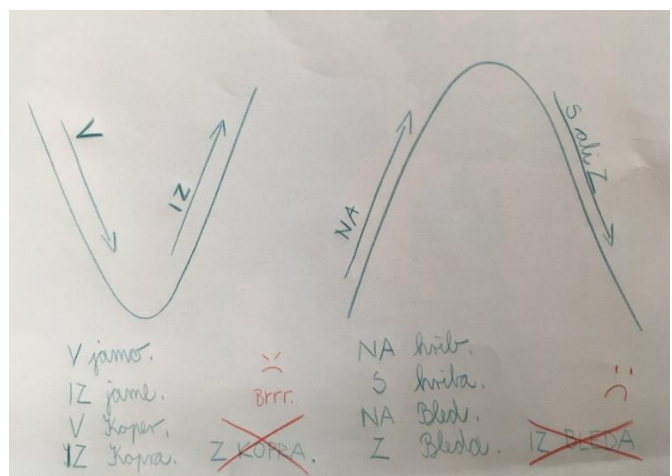 V
IZ
NA
S ali Z
V jamo.
IZ jame.
Brrr.
V Koper.
IZ Kopra.
Z KOPRA.
NA hrib.
S hriba.
NA Bled.
Z Bleda.
IZ BLEDA